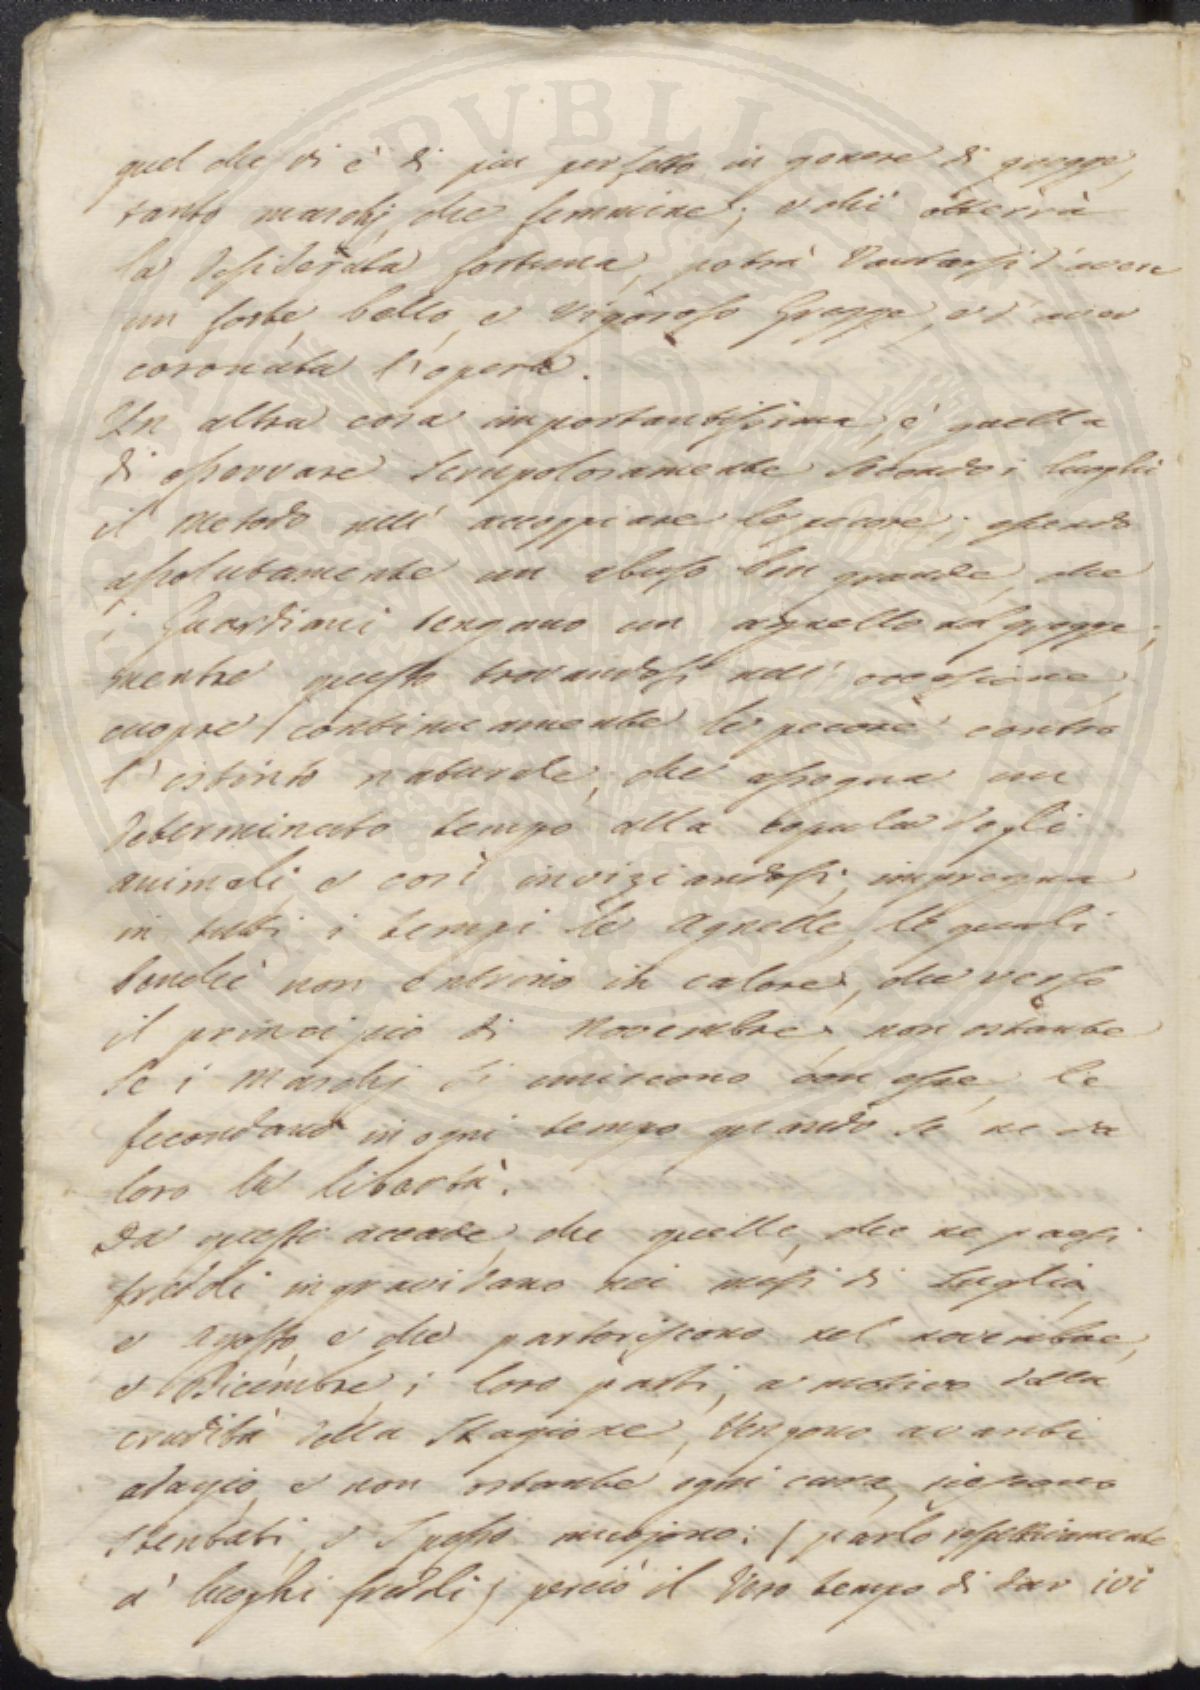 quel che vi è di piu perfetto in genere di gregge,
tanto maschj, che femmine; e chi otterrà
la desiderata fortuna, potrà vantarsi d'avere
un forte, bello, e vigoroso Gregge, e d'aver
coronata l'opera.
Un altra cosa importantissima, è quella
di osservare scrupolosamente secondo i luoghi
il metodo nell' accoppiare le pecore; essendo
assolutamente un abuso ben grande, che
i Guardiani tengano un agnello nel gregge;
mentre questo trovandosi nell' occasione,
cuopre continuamente le pecore contro
l'istinto naturale, che assegna un
determinato tempo alla copula degli
animali, e così inviziandosi, impregna
in tutti i tempi le Agnelle, le quali
benchè non entrino in calore, che verso
il principio di Novembre, non ostante
se i Maschj si uniscono con esse, le
fecondano in ogni tempo quando se ne da
loro la libertà.
Da questo accade, che quelle, che ne paesi
freddi ingravidano nei mesi di Luglio,
e Agosto, e che partoriscono nel novembre,
e Dicembre, i loro parti, a motivo della
crudità della Stagione, vengono avanti
adagio, e non ostante ogni cura, riescono
stentati, e spesso muojono: (parlo rispettivamente
a' luoghi freddi) perciò il vero tempo di dar ivi